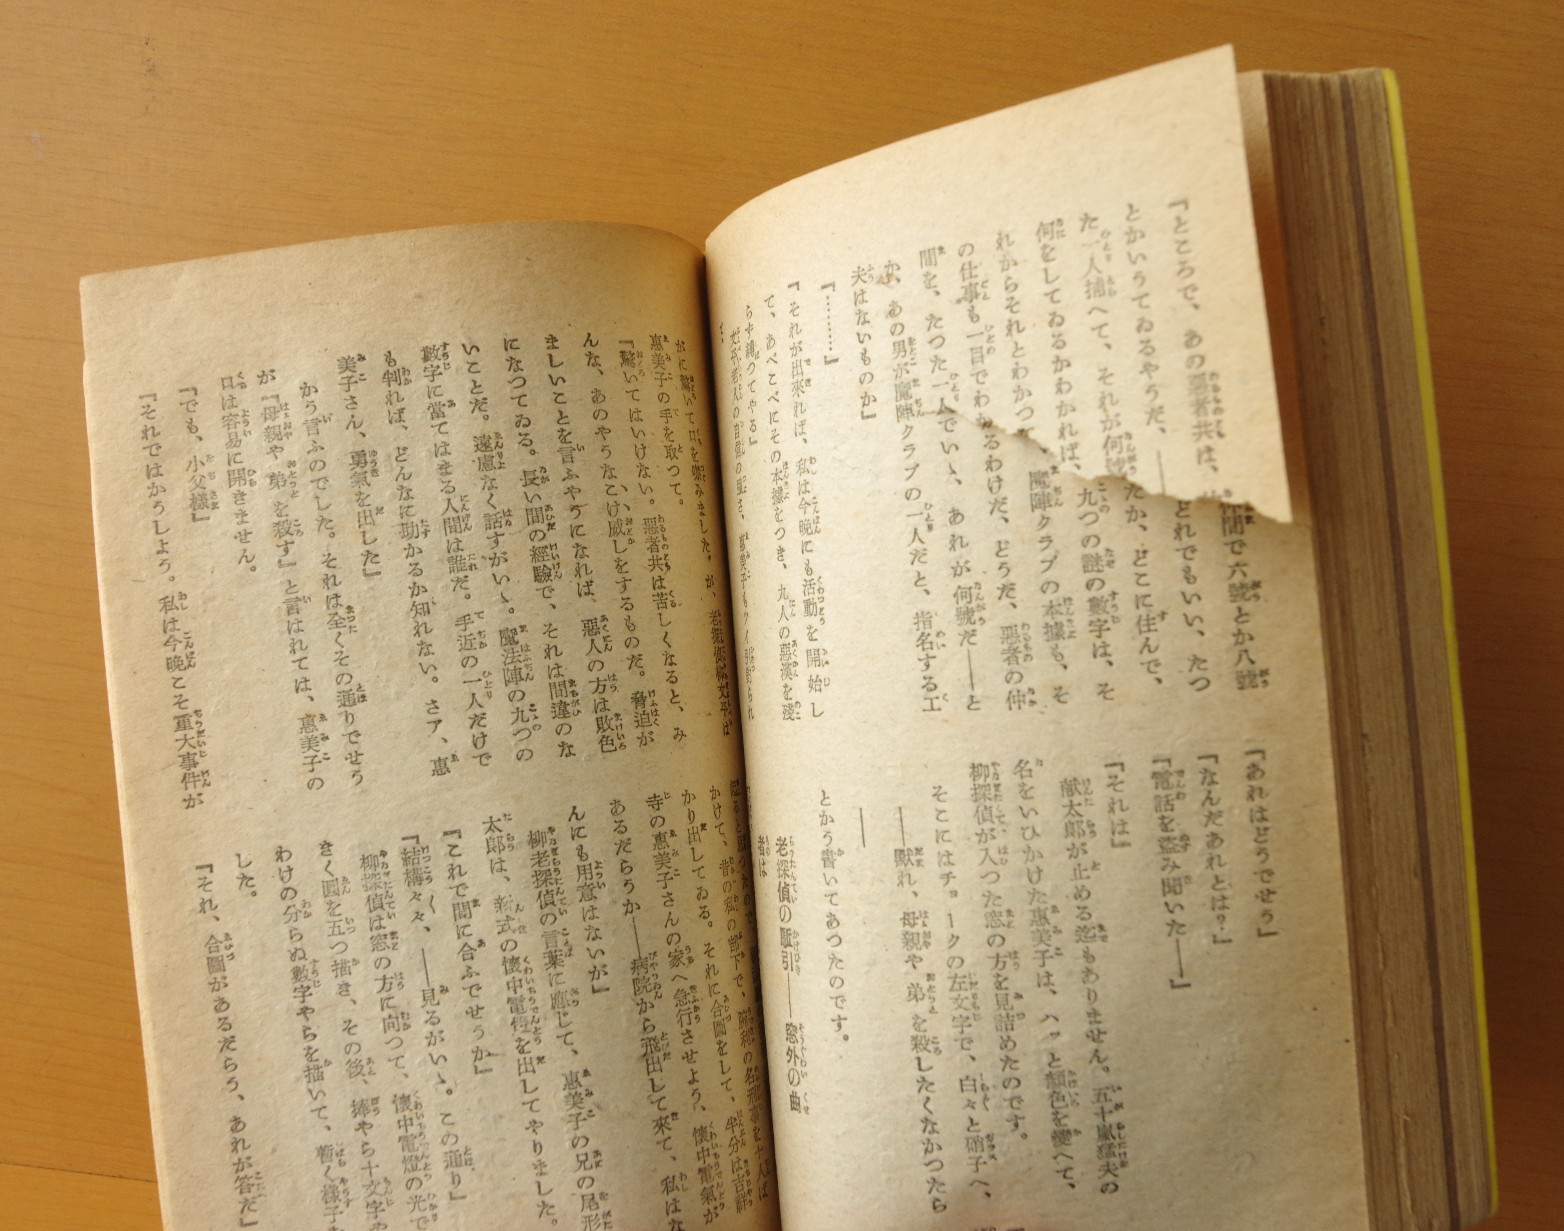 『ところで、あの惡者共は、仲間で六號とか八號
とかいうてゐるやうだ、――どれでもいい、たつ
た一人捕へて、それが何號だか、どこに住んで、
何をしてゐるかわかれば、九つの謎の數字は、そ
れからそれとわかつて、魔陣クラブの本據も、そ
の仕事も一目でわかるわけだ、どうだ、惡者の仲
間を、たつた一人でいゝ、あれが何號だ――と
か、あの男が魔陣クラブの一人だと、指名する工
夫はないものか』
『………』
『それが出來れば、私は今晩にも活動を開始し
て、あべこべにその本據をつき、九人の惡漢を殘
らず縛つてやる』
『あれはどうでせう』
『なんだあれとは?』
『電話を盗み聞いた――』
『それは』
献太郎が止める迄もありません。五十嵐猛夫の
名をいひかけた惠美子は、ハッと顏色を變へて、
柳探偵が入つた窓の方を見詰めたのです。
そこにはチョークの左文字で、白々と硝子へ、
――默れ、母親や弟を殺したくなかつたら
――
とかう書いてあつたのです。
老探偵の駈引――窓外の曲
者は
がに驚いて口を噤みました。が、老探偵柳文平は
惠美子の手を取つて。
『驚いてはいけない。惡者共は苦しくなると、み
んな、あのやうなこけ威しをするものだ。脅迫が
ましいことを言ふやうになれば、惡人の方は敗色
になつてゐる。長い間の經驗で、それは間違のな
いことだ。遠慮なく話すがいゝ。魔法陣の九つの
數字に當てはまる人間は誰だ。手近の一人だけで
も判れば、どんなに助かるか知れない。さア、惠
美子さん、勇氣を出した』
かう言ふのでした。それは全くその通りでせう
が『母親や弟を殺す』と言はれては、惠美子の
口は容易に開きません。
『でも、小父樣』
『それではかうしよう。私は今晩こそ重大事件が
かけて、昔の私の部下で、腕利の名刑事を十人ば
かり出してゐる。それに合圖をして、半分は吉祥
寺の惠美子さんの家へ急行させよう、懷中電氣が
あるだらうか――病院から飛出して來て、私はな
んにも用意はないが』
柳老探偵の言葉に應じて、惠美子の兄の尾形
太郎は、新式の懷中電燈を出してやりました。
『これで間に合ふでせうか』
『結構々々、――見るがいゝ。この通り』
柳探偵は窓の方に向つて、懷中電燈の光で
きく圓を五つ描き、その後、棒やら十文字や
わけの分らぬ數字やらを描いて、暫く樣子
した。
『それ、合圖があるだらう、あれが答だ』